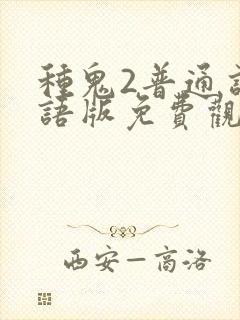 種鬼2普通
語版免費觀
西安—高洛